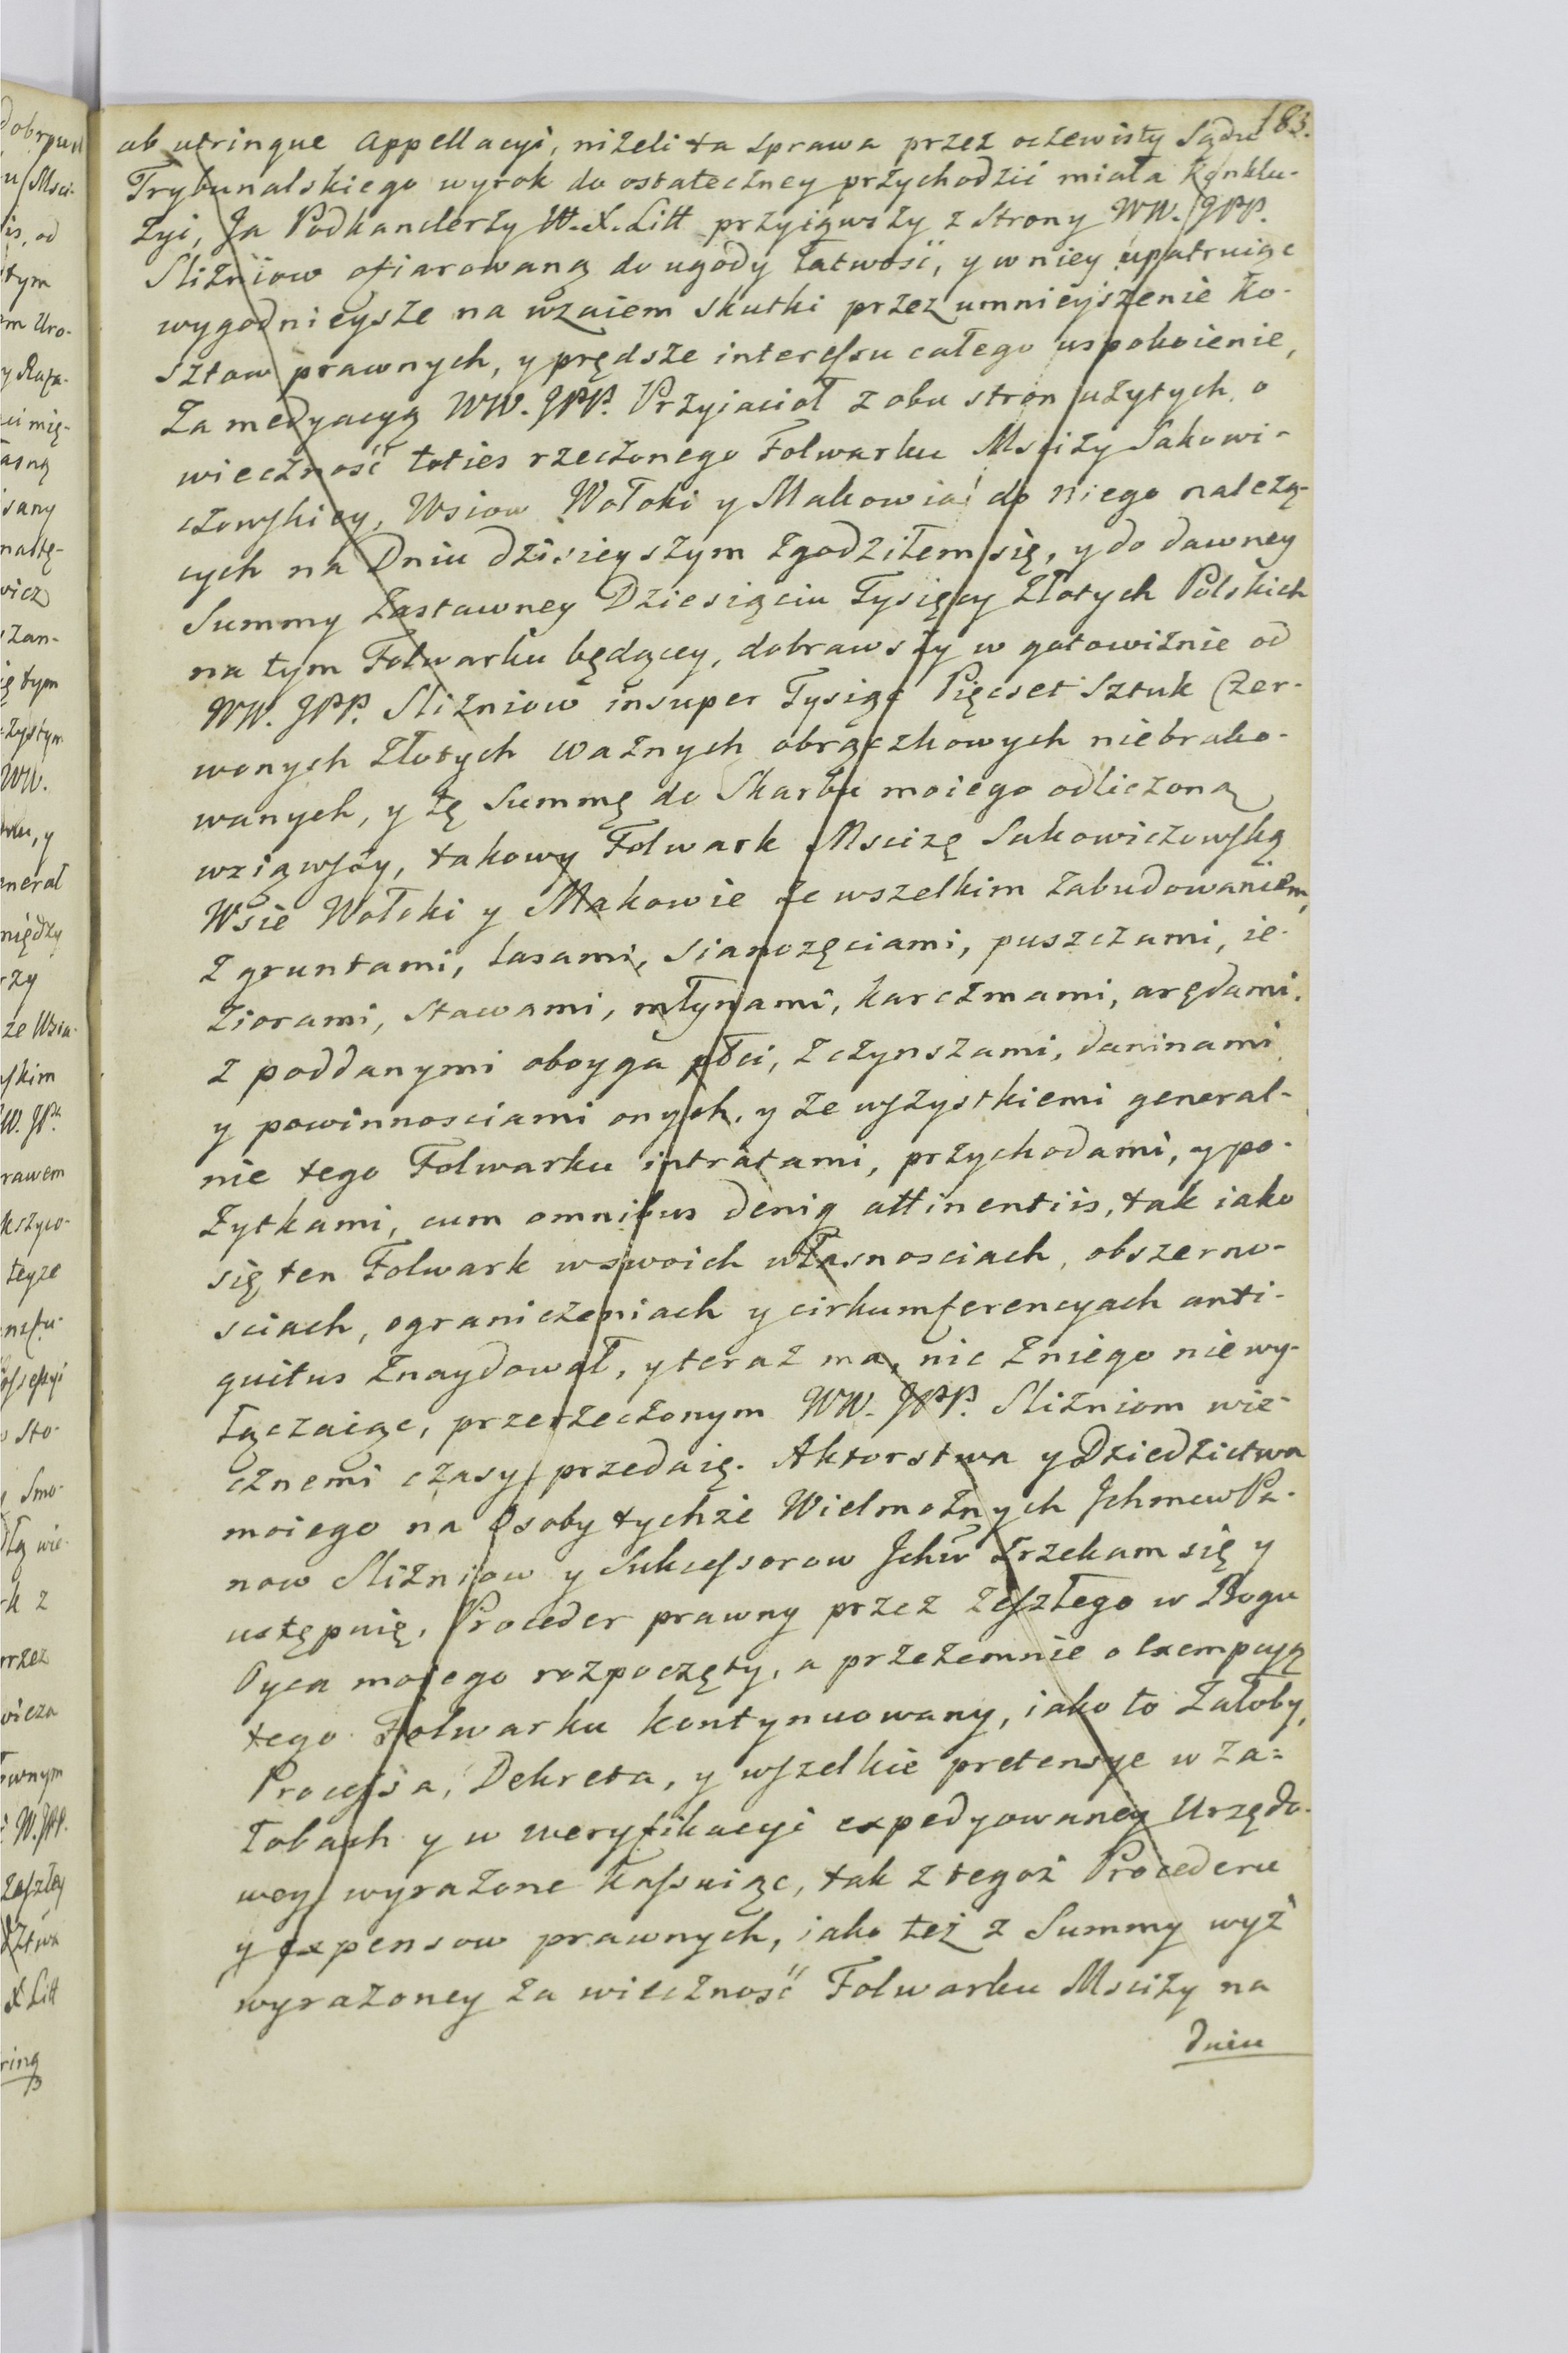 183.
ab utrinque Appellacyi, niżeli ta sprawa przez oczewisty Sądu
Trybunalskiego wyrok do ostateczney przychodzić miała Konklu-
zyi, Ja Podkanclerzy W.X.Litt przyiąwszy z Strony WW. JPP.
Sliźniow ofiarowaną do ugody łatwość, y w niey upatruiąc
wygodnieysze na wzaiem skutki przez umnieyszenie Ko-
sztow prawnych, y prędsze interessu całego uspokoienie,
Za medyacyą WW. JPP. Przyiacioł z obu stron użytych, o
wieczność toties rzeczonego Folwarku Mścizy Sakowi-
czowskiey, Wsiow Wołoki y Makowia do niego należą-
cych na Dniu dzisieyszym zgodziłem się, y do dawney
Summy Zastawney Dziesięciu Tysięcy Złotych Polskich
na tym Folwarku będącey, dobrawszy w gotowiźnie od
WW. JPP. Sliźniow insuper Tysiąc Pięcset Sztuk Czer-
wonych Złotych ważnych obrączkowych niebrako-
wanych, y tę Summę do Skarbu moiego odliczoną
wziąwszy, takowy Folwark Mscizę Sakowiczowską
Wsie Wołoki y Makowie ze wszelkim zabudowaniem,
z gruntami, lasami, sianożęciami, puszczami, ie-
ziorami, stawami, młynami, karczmami, arędami,
z poddanymi oboyga płci, z czynszami, daninami
y powinnosciami onych, y ze wszystkiemi general-
nie tego Folwarku intratami, przychodami, y po-
żytkami, cum omnibus deniq attinentiis, tak iako
się ten Folwark w swoich własnosciach, obszerno-
sciach, ograniczeniach y cirkumferencyach anti-
quitus znaydował, y teraz ma, nic z niego nie wy-
łączaiąc, przerzeczonym WW. JPP. Sliźniom wie-
cznemi czasy przedaię. Aktorstwa y Dziedzictwa
moiego na Osoby tychże Wielmożnych Jchmcw Pa-
now Sliźniow y Sukcessorow Jchw zrzekam się y
ustępuię, Proceder prawny przez zeszłego w Bogu
Oyca mojego rozpoczęty, a przezemnie o Exempcyą
tego Folwarku kontynuowany, iako to Załoby,
Processa, Dekreta, y wszelkie pretensye w Za-
łobach y w weryfikacyi expedyowaney Urzędo-
wey wyrażone kassuiąc, tak z tegoż Procederu
y expensow prawnych, iako też z Summy wyż
wyrażoney za wieczność Folwarku Mscizy na
dniu